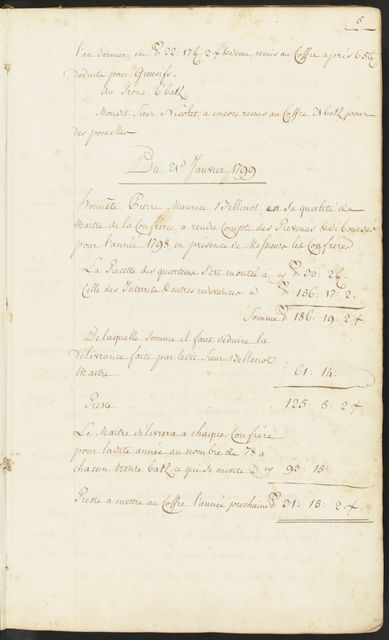 5
l'an dernier, en 22: 17 6. 2 + bedeme remis au Coffre apres 6 btz
deduits pour Greusifs.
au Prone 6 batz
Mondit Sieur Nicolet a encore remis au Coffre 21 batz pour
des pomelles
Du 21 Janvier 1799.
honnete Pierre Maurice Bellenot, en sa qualité de
Maitre de la Confrérie, a rendu Compte des Revenus & deboursés
pour l'année 1798, en presence de Messieurs les Confreres
La Recette des quarterons S'est montée à 30: 2
Celle des Interrets & autres redevances a 156: 17: 2.
Somme 186: 19: 2 +
De laquelle somme il faut deduire la
délivrance faite par ledit Sieur Bellenot
Maitre 61: 14:
Reste 125: 5: 2 +
Le Maitre délivrera a chaque Confrére
pour ladite année au nombre de 78 a
chacun trente batz ce qui se monte 93: 15:
Reste a mettre au Coffre l'année prochaine 31: 15: 2 +